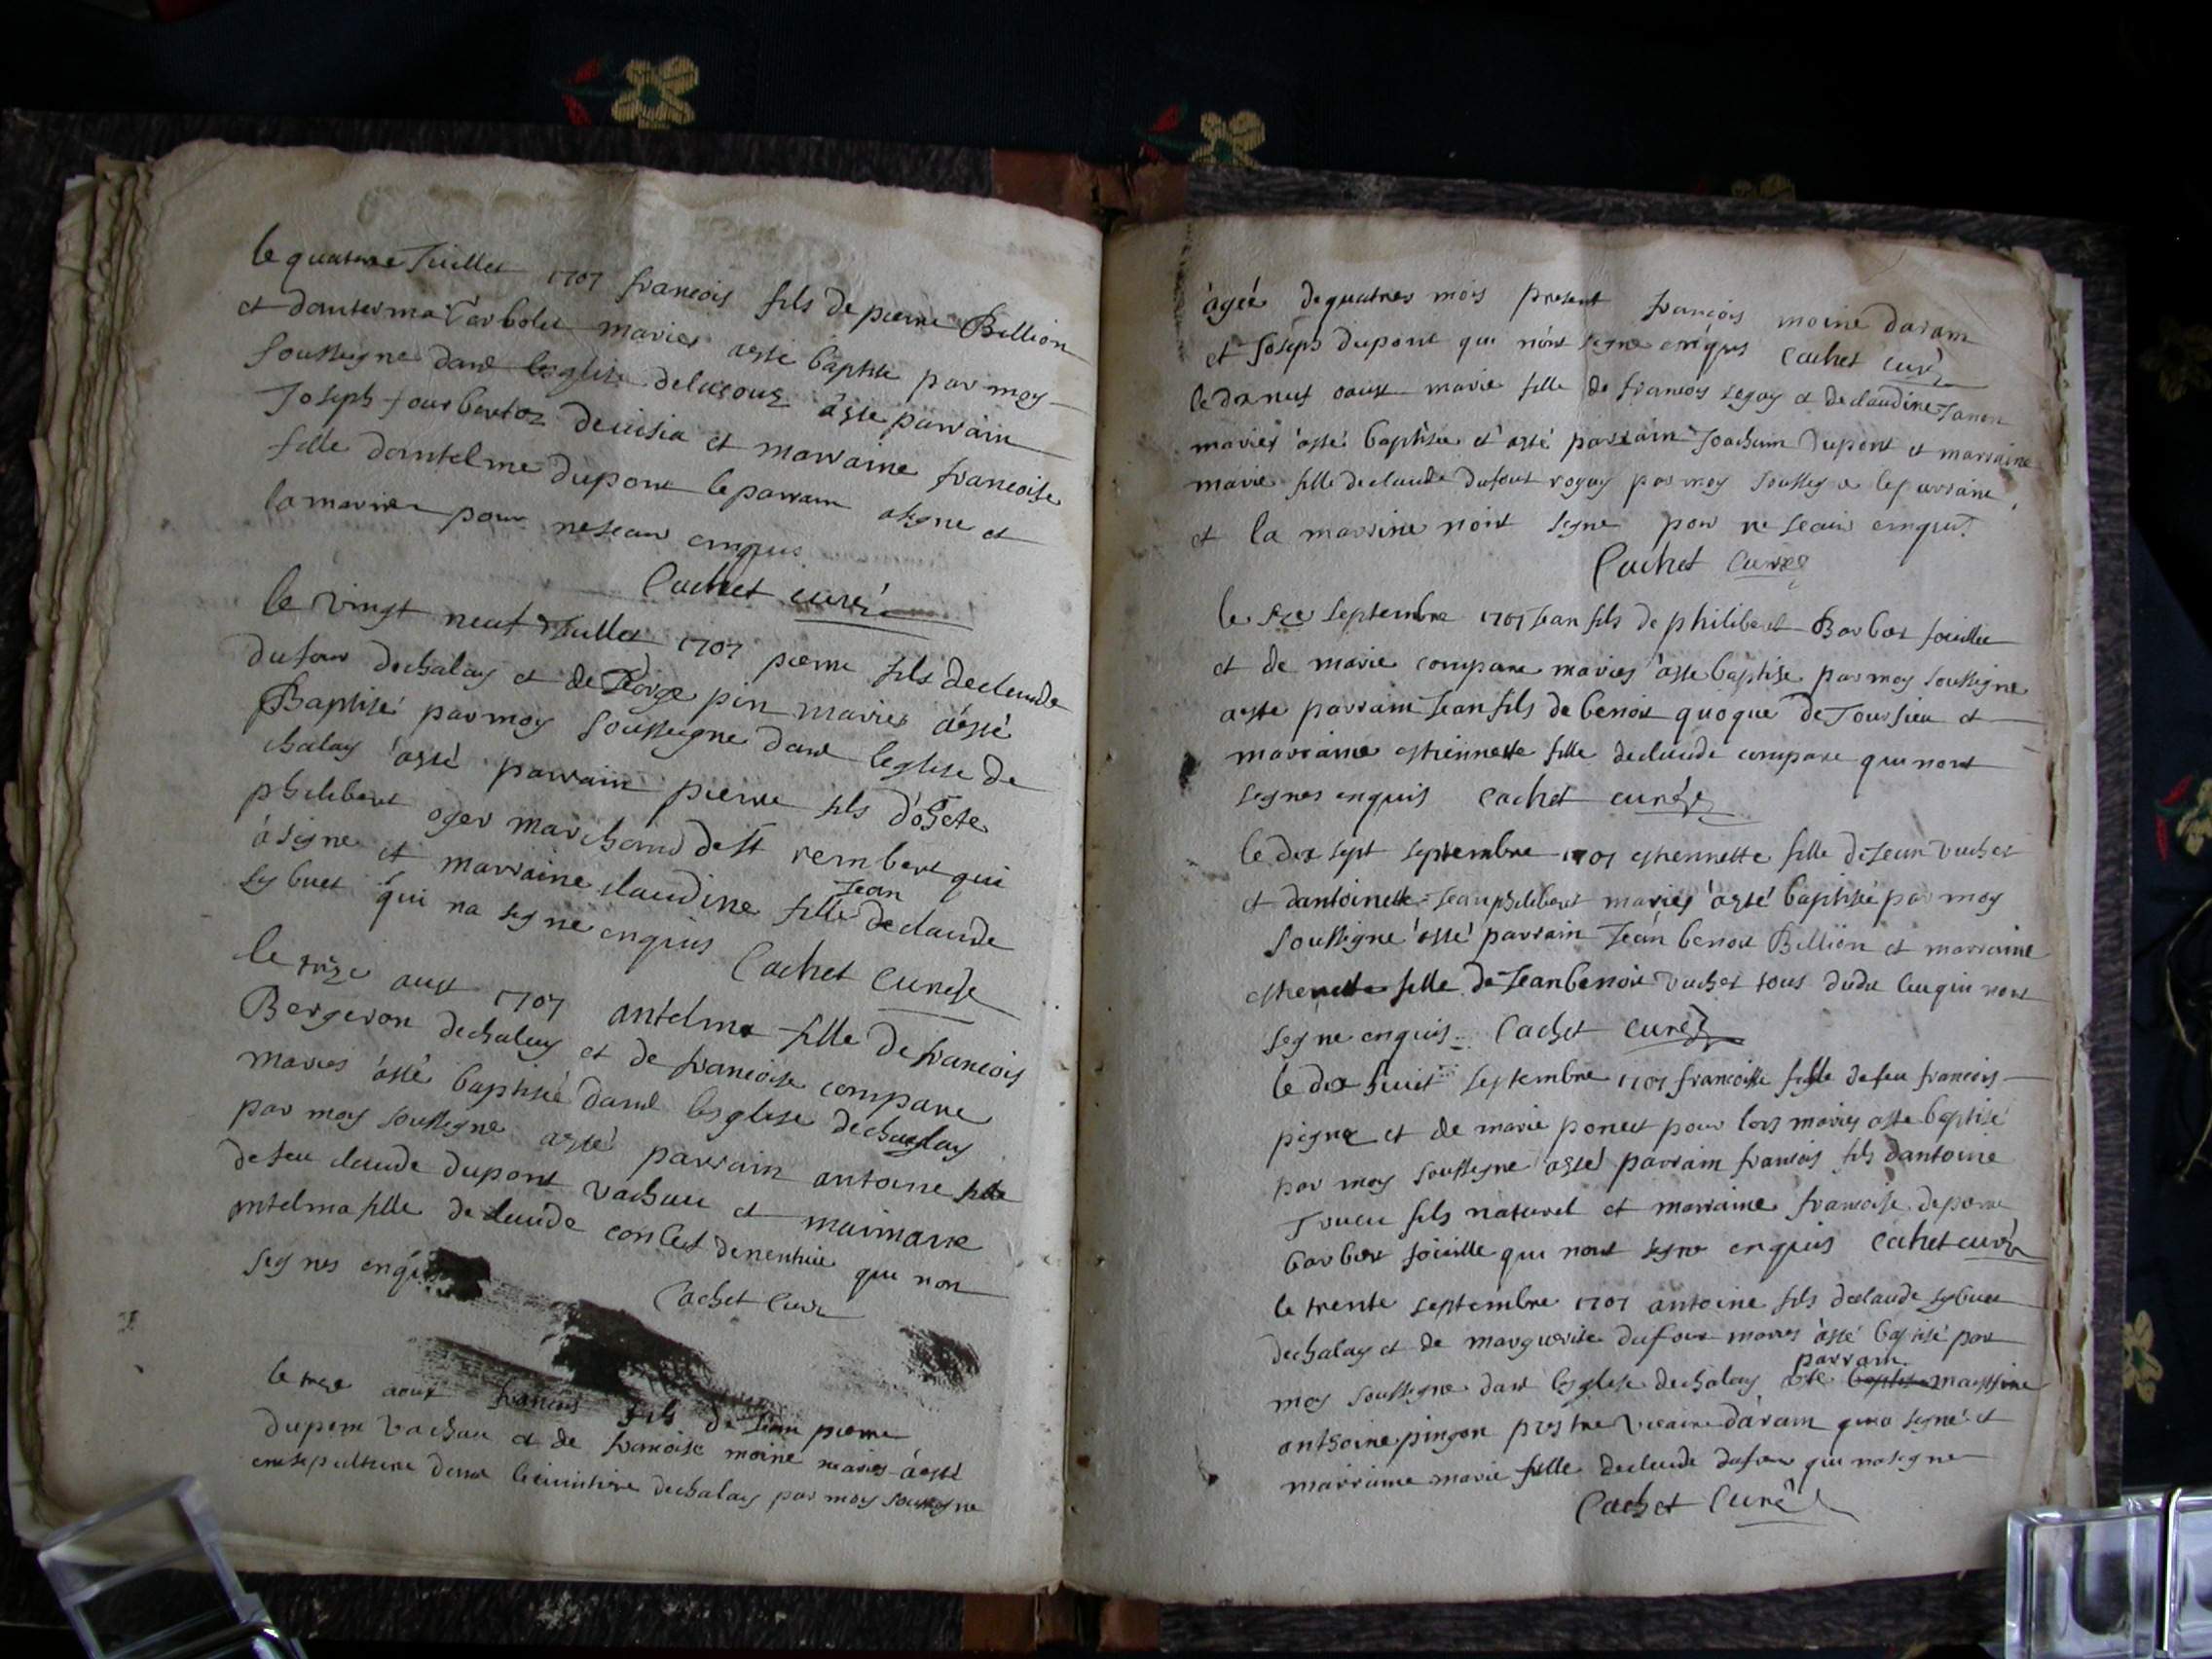 le quatorze Juillet 1707 francois fils de pierre Billion
et dantelma Carbolet maries asté baptisé par moy
soussigne dans leglise delucoux aste parrain
Joseph fourbertoz de et marraine francoise
fille dantelme dupont le parrain a signe et
la pour ne scavoir enquis
Cachet curé
le vingt neuf Juillet 1707 pierre fils declaude
dufour dechaley et de pin maries a esté
Baptisé par moy soussigne dans leglise de
chaley asté parrain pierre fils
philibert oger marchand de st rembert qui
a signe et marraine claudine fille Jean declaude
sybuet qui na signe enquis Cachet Cure
le treze aust 1707 antelma fille de francois
Bergeron dechaley et de francoise compare
maries asté baptisée dans lesglise dechaley
par moy soussigne asté parrain antoine fils
defeu claude dupont vachat et
antelma fille declaude qui non
signes enquis
Cachet Cure
le treze aoust francois fils de Jean pierre
dupont vachat et de francoise moine maries a esté
ensepulturé dans le cimitiere dechaley par moy soussigne
agée dequatres mois present francois moine daram
et Joseph dupont qui nont signe enquis Cachet curé
le dix neuf aoust marie fille de francois Legay et declaudine Janon
maries asté baptisee et asté parrain Joachim dupont et marraine
marie fille declaude dufour par moy soussigne le parraine
et la marrine nont signe pour ne scavoir enquis
Cachet Curé
le septembre 1707 Jean fils de philibert Barbet
et de marie compare maries asté baptise par moy soussigne
aste parrain Jean fils de benoit quoque de et
marraine estiennette fille declaude compare qui nont
signes enquis Cachet curé
le dix sept septembre 1707 estiennette fille de Jean vuchet
et dantoinette Jeanphilibert maries asté baptisée par moy
soussigne asté parrain Jean benoit Billion et marraine
estienette fille de Jean benoit vuchet tous dudit lieu qui nont
signe enquis Cachet curé
le dix huit septembre 1707 francoise fille defeu francois
et de marie poncet pour lors maries asté baptisé
par moy soussigne asté parrain francois fils dantoine
fils naturel et marraine francoise
barbet qui nont signe enquis Cachet curé
le trente septembre 1707 antoine fils declaude sybuet
dechaley et de marguerite dufour maries asté baptisé par
moy soussigne dans lesglise dechaley aste parrain
anthoine pingon prestre vicaire daram qui a signé et
marraine marie fille declaude dufour qui na signe
Cachet Curé